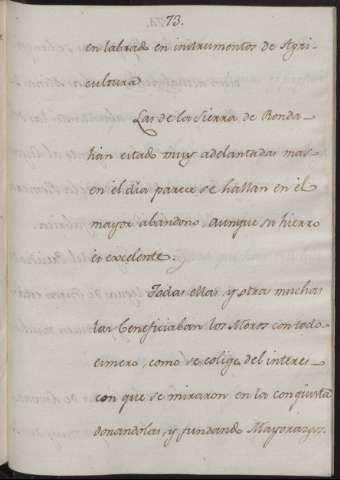 73.
en labrado en instrumentos de Agri-
cultura
Las de la Sierra de Ronda
han estado muy adelantadas mas
en el dia parece se hallan en el
mayor abandono, aunque su hierro
es excelente.
Todas ellas, y otra muchas
las beneficiaban los Moros con todo
esmero, como se colige del interes
con que se miraron en la conquista
donandolas, y fundando Mayorazgos.